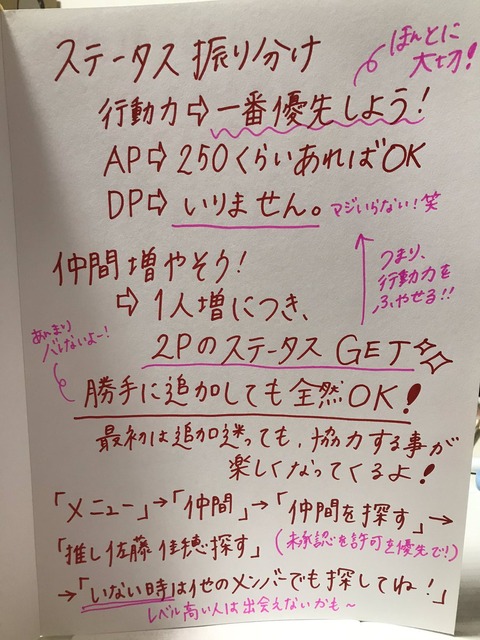 ステータス振り分け
ほんとに
大切!
行動力⇨一番優先しよう!
AP⇨250くらいあればOK
DP⇨いりません。
マジいらない!笑
仲間増やそう!
⇨1人増につき、
2PのステータスGET
つまり、
行動力を
ふやせる!!
あんまり
バレないよー!
勝手に追加しても全然OK!
最初は追加迷っても、協力する事が
楽しくなってくるよ!
「メニュー」→「仲間」→「仲間を探す」→
「推し佐藤佳穂探す」(未承認を許可を優先で!)
→「いない時」は他のメンバーでも探してね!」
レベル高い人は出会えないかも~